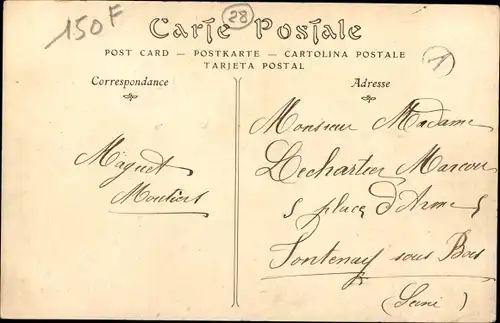 150F
28
Carte Postale
POST CARD — POSTKARTE — CARTOLINA POSTALE
TARJETA POSTAL
Correspondance
Adresse
1
Monsieur Madame
Lechartier Marcou
5 place d'Armes
Fontenay sous Bois
(Seine)
Maguet
Moutiers